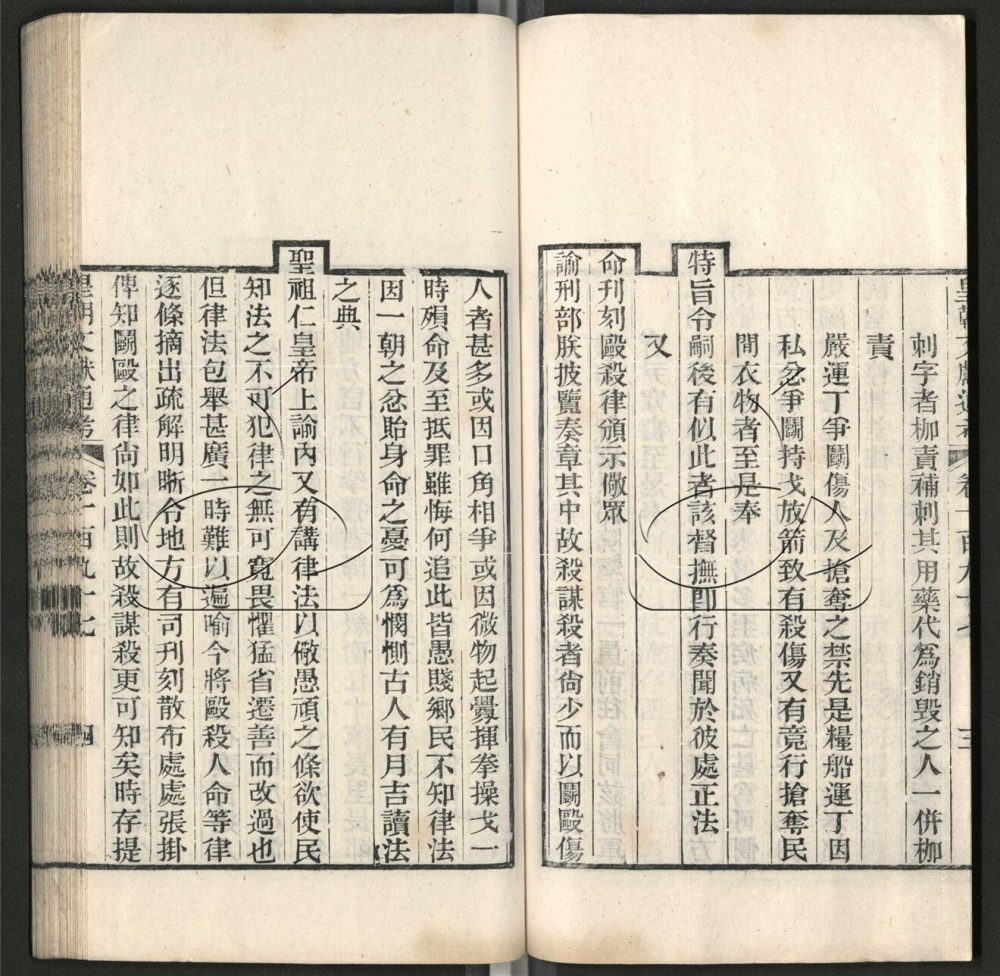 皇朝文獻通考 卷一百九十七 三
刺字者枷責補刺其用藥代為銷毀之人一併枷
責
嚴運丁爭鬭傷人及搶奪之禁先是糧船運丁因
私忿爭鬭持戈放箭致有殺傷又有竟行搶奪民
間衣物者至是奉
特旨令嗣後有似此者該督撫即行奏聞於彼處正法
又
命刊刻毆殺律頒示儆眾
諭刑部朕披覽奏章其中故殺謀殺者尚少而以鬭毆傷
人者甚多或因口角相爭或因微物起釁揮拳操戈一
時殞命及至抵罪雖悔何追此皆愚賤鄉民不知律法
因一朝之忿貽身命之憂可為憫惻古人有月吉讀法
之典
聖祖仁皇帝上諭內又有講律法以儆愚頑之條欲使民
知法之不可犯律之無可寬畏懼猛省遷善而改過也
但律法包舉甚廣一時難以遍喻今將毆殺人命等律
逐條摘出疏解明晰令地方有司刊刻散布處處張掛
傳知鬭毆之律尚如此則故殺謀殺更可知矣時存提
皇朝文獻通考 卷一百九十七 四